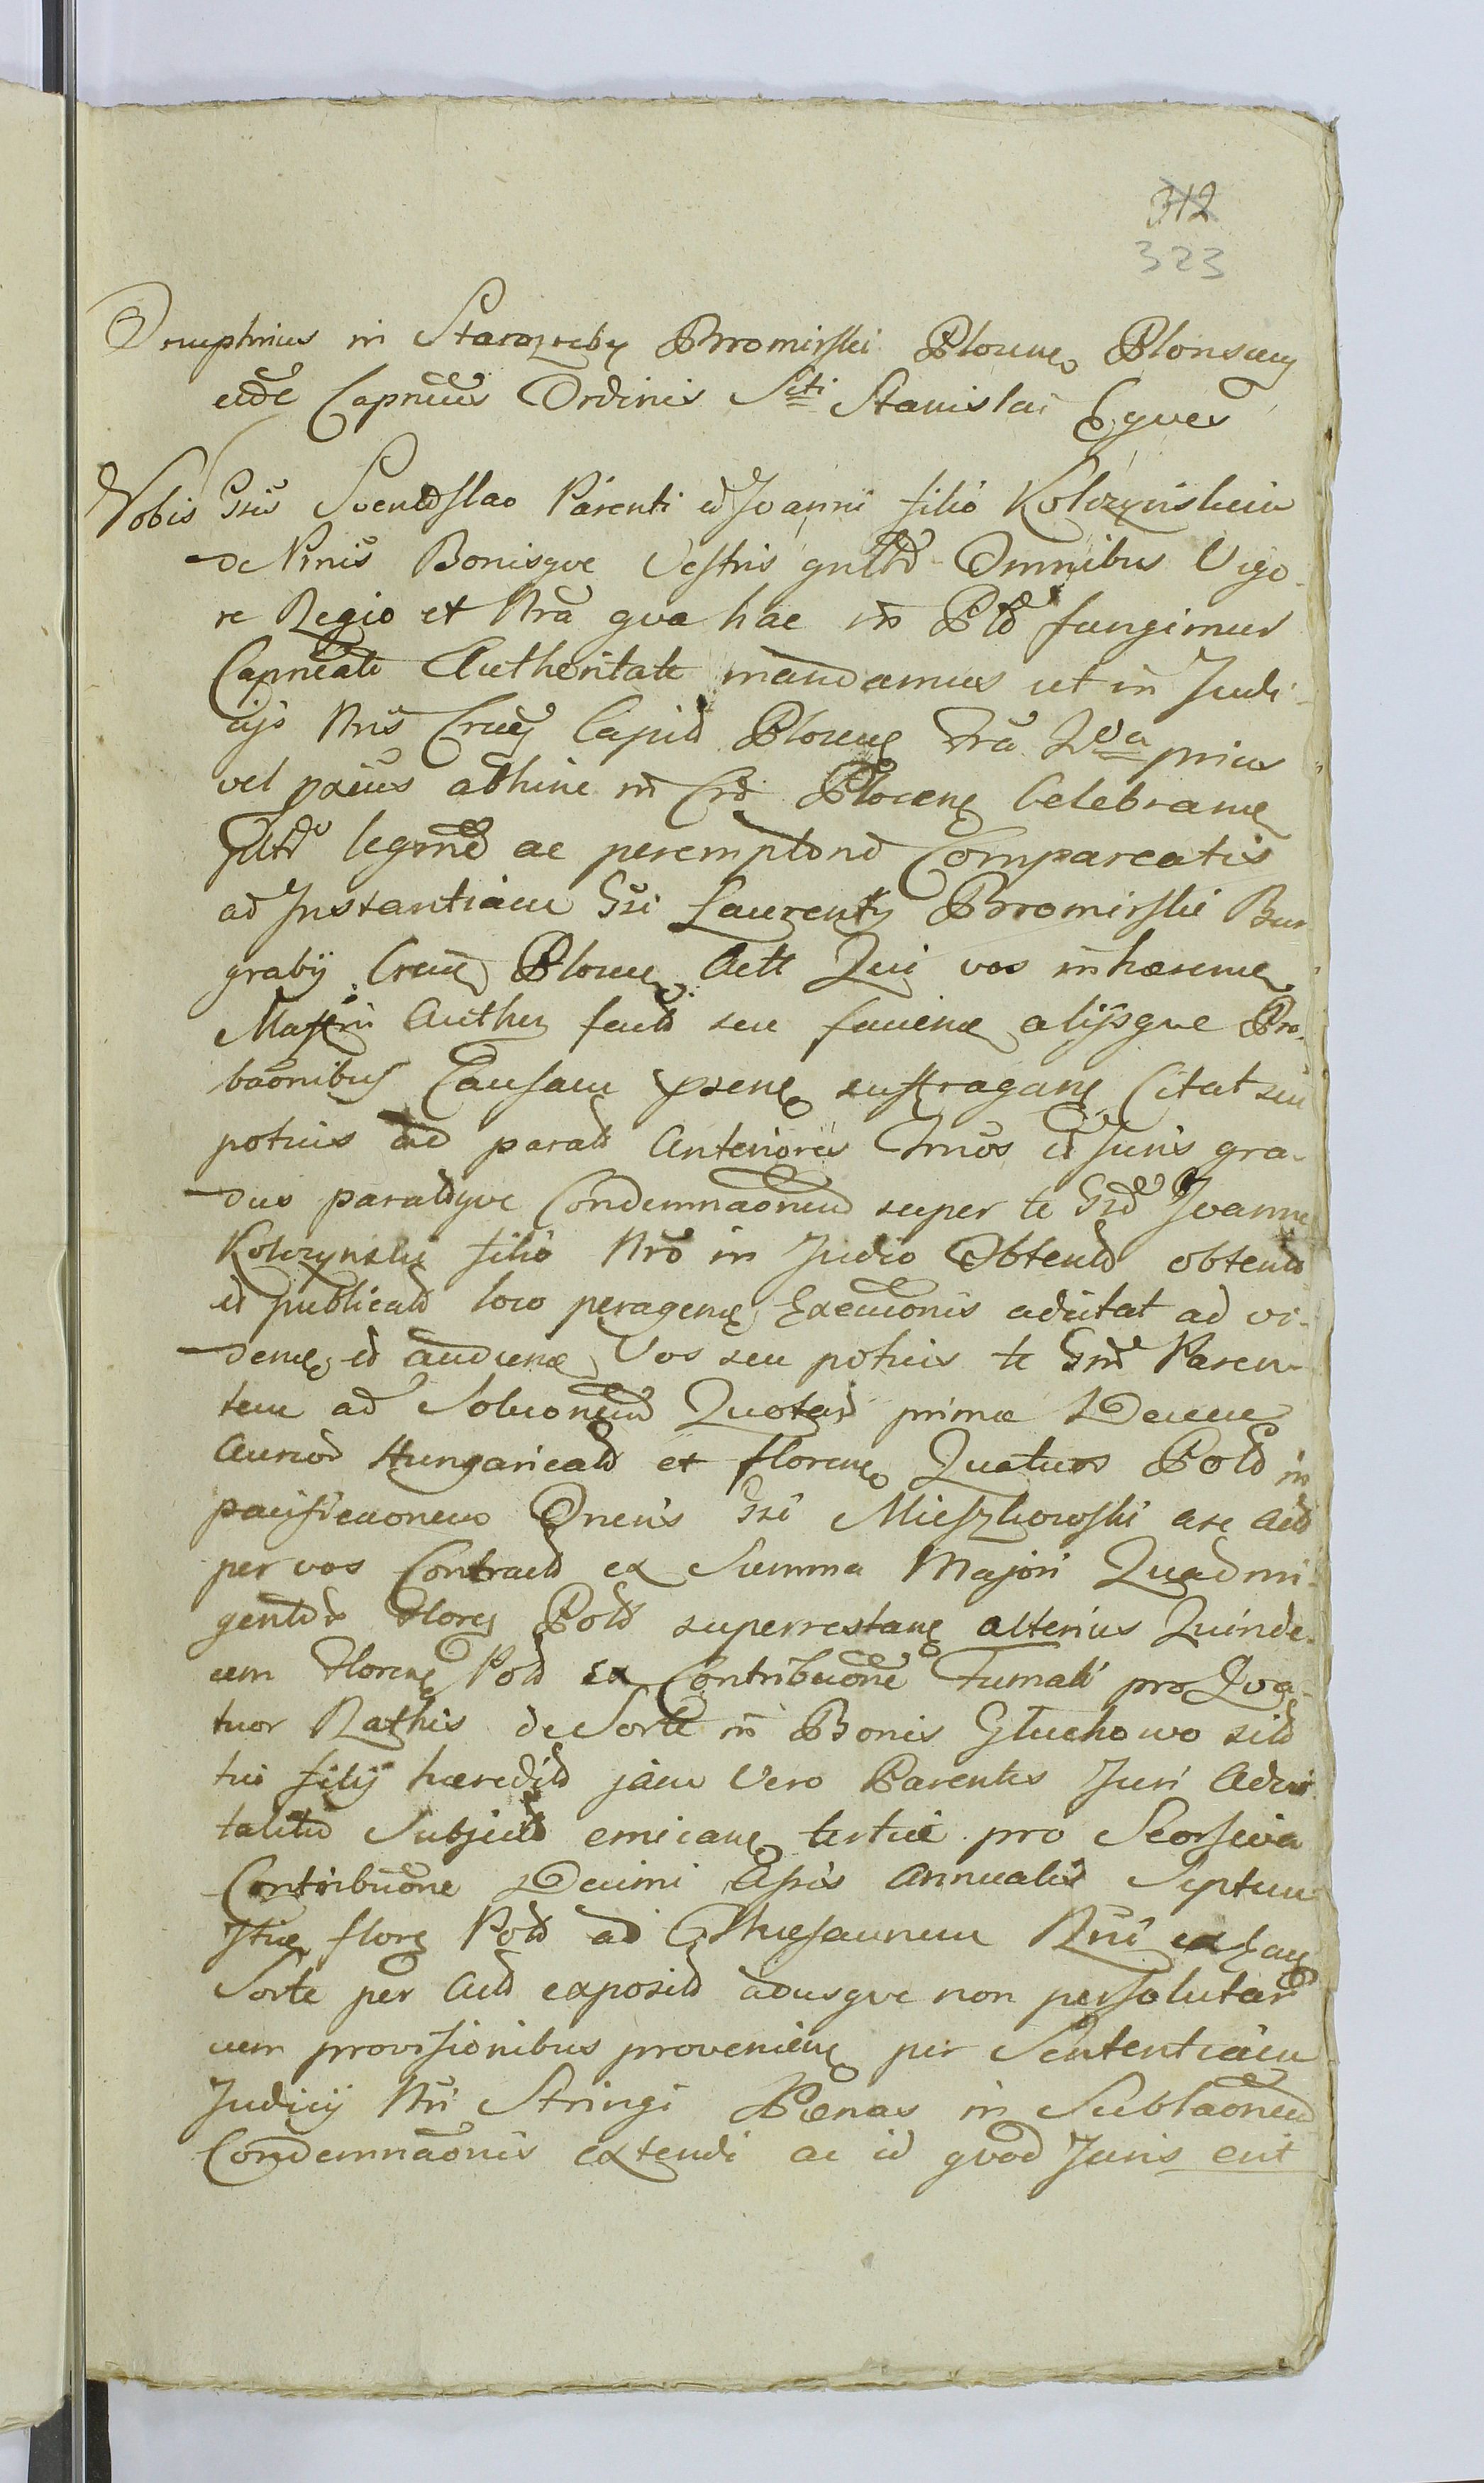 312
323
Onuphrius in Starozreby Bromirski Plocen Plonscen
eide Capneus Ordinis Scti Stanislai Eques
Vobis Gsis Svendslao Parenti et Joanni filio Kolczynskim
de Prnis Bonisque Vestris gnltr Omnibus Vigo-
re Regio et Nra qua hac in Pte fungimur
Capneali Authoritate mandamus ut in Judi-
cijs Nris Cren Capid Plocen fra 2da prius
vel pximis abhinc in Cro Plocen Celebran
Pltr legme ac peremptorie Compareatis
ad Instantiam Gsi Laurentij Bromirski Bur-
grabij Cren Plocen Act Qui vos inhaeren
Mastri Authen facto seu facien alijsque Pro-
baonibus Causam psen suffragan Citat seu
potius ad parat Anteriores Tmos et Juris gra-
dus paratque Condemnaonem super te Gso Joanne
Kolczynski filio Nro in Judio Obtent obtent
et publicat loco peragen Exeuonis adcitat ad vi-
den et audien Vos seu potius te Gsm Paren-
tem ad Soluonem Quotar prima Decem
Aureor Hungarical et floren Quatuor Pol in
pacificuonem Oneris Gsi Mieszkowski aere Act
per vos Contract ex Summa Majori Quadrin-
gentor Floren Pol superrestan alterius Quinde-
cim Floren Pol ex Contribuone Fumali pro Qva-
tuor Rathis de Sorte in Bonis Gluchowo sit
tui filij haeredit jam Vero Parentis Juri Advi-
talitio Subject emican tertiae pro Seorsiva
Contribuone Decimi Assis Annualis Septem
flore Pol ad Thesaurum Rni ex
Sorte per Act exposit adusque non persolutar
cum provisionibus provenien per Sententiam
Judicij Nri Stringi Paenas in Sublaonem
Condemnaonis extendi ac id quod Juris erit